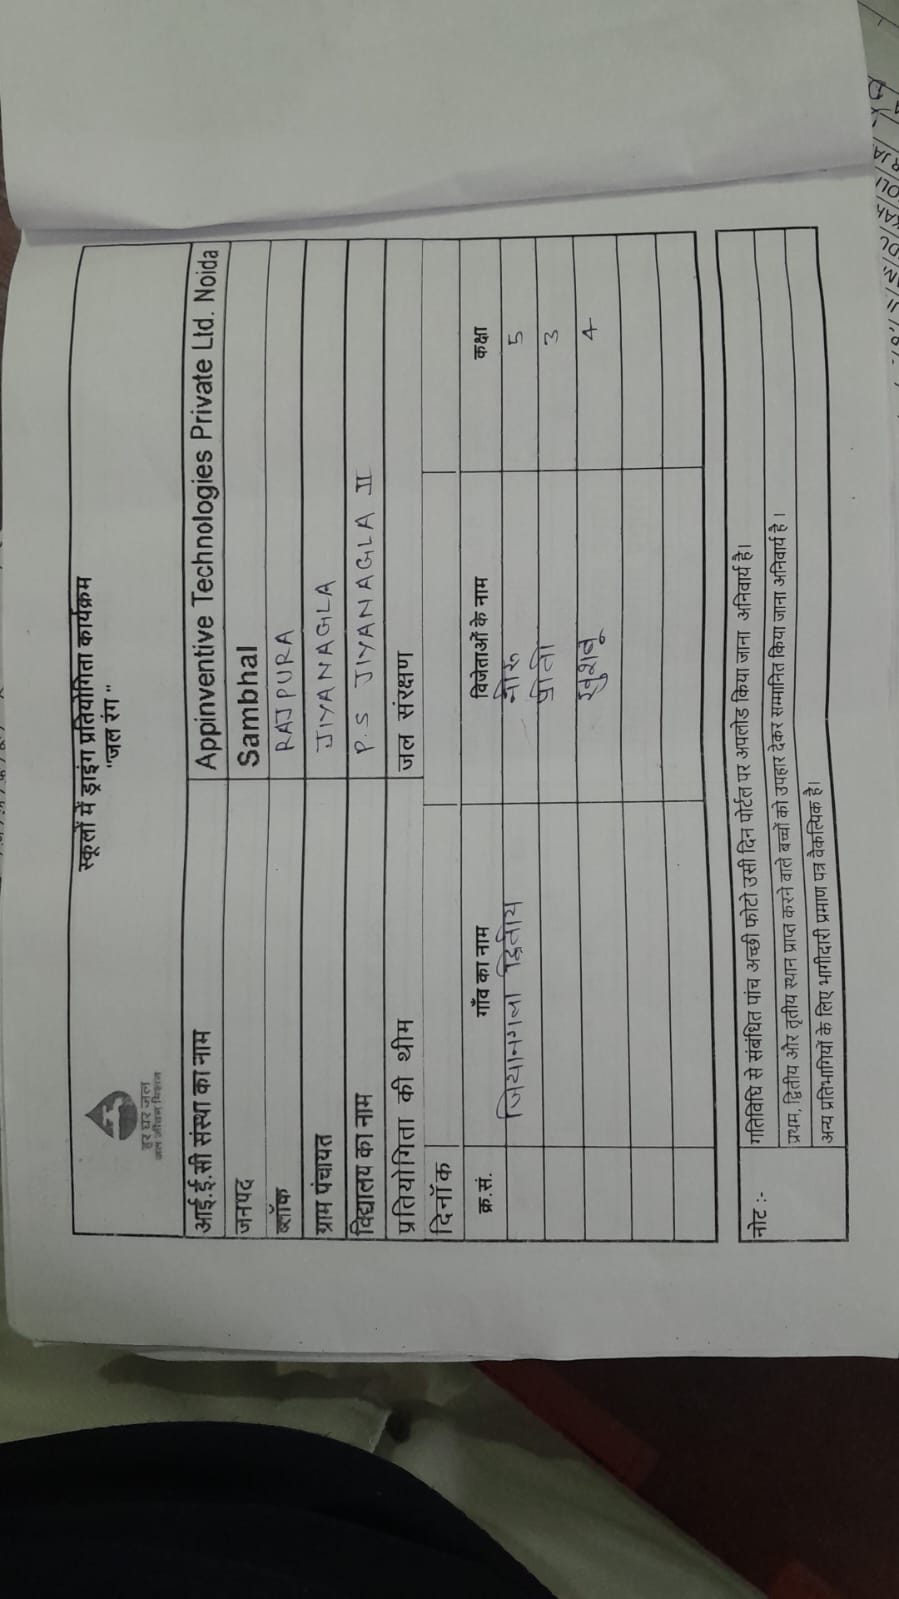 स्कूलों में ड्राइंग प्रतियोगिता कार्यक्रम
"जल रंग"
हर घर जल
जल जीवन मिशन
आई.ई.सी संस्था का नाम Appinventive Technologies Private Ltd. Noida
जनपद Sambhal
ब्लॉक RAJPURA
ग्राम पंचायत JIYANAGLA
विद्यालय का नाम P.S JIYANAGLA II
प्रतियोगिता की थीम जल संरक्षण
दिनॉक
क्र.सं. गाँव का नाम विजेताओं के नाम कक्षा
जियानगला द्वितीय 5
3
खुशबू 4
नोट :- गतिविधि से संबंधित पांच अच्छी फोटो उसी दिन पोर्टल पर अपलोड किया जाना अनिवार्य है।
प्रथम, द्वितीय और तृतीय स्थान प्राप्त करने वाले बच्चों को उपहार देकर सम्मानित किया जाना अनिवार्य है।
अन्य प्रतिभागियों के लिए भागीदारी प्रमाण पत्र वैकल्पिक है।